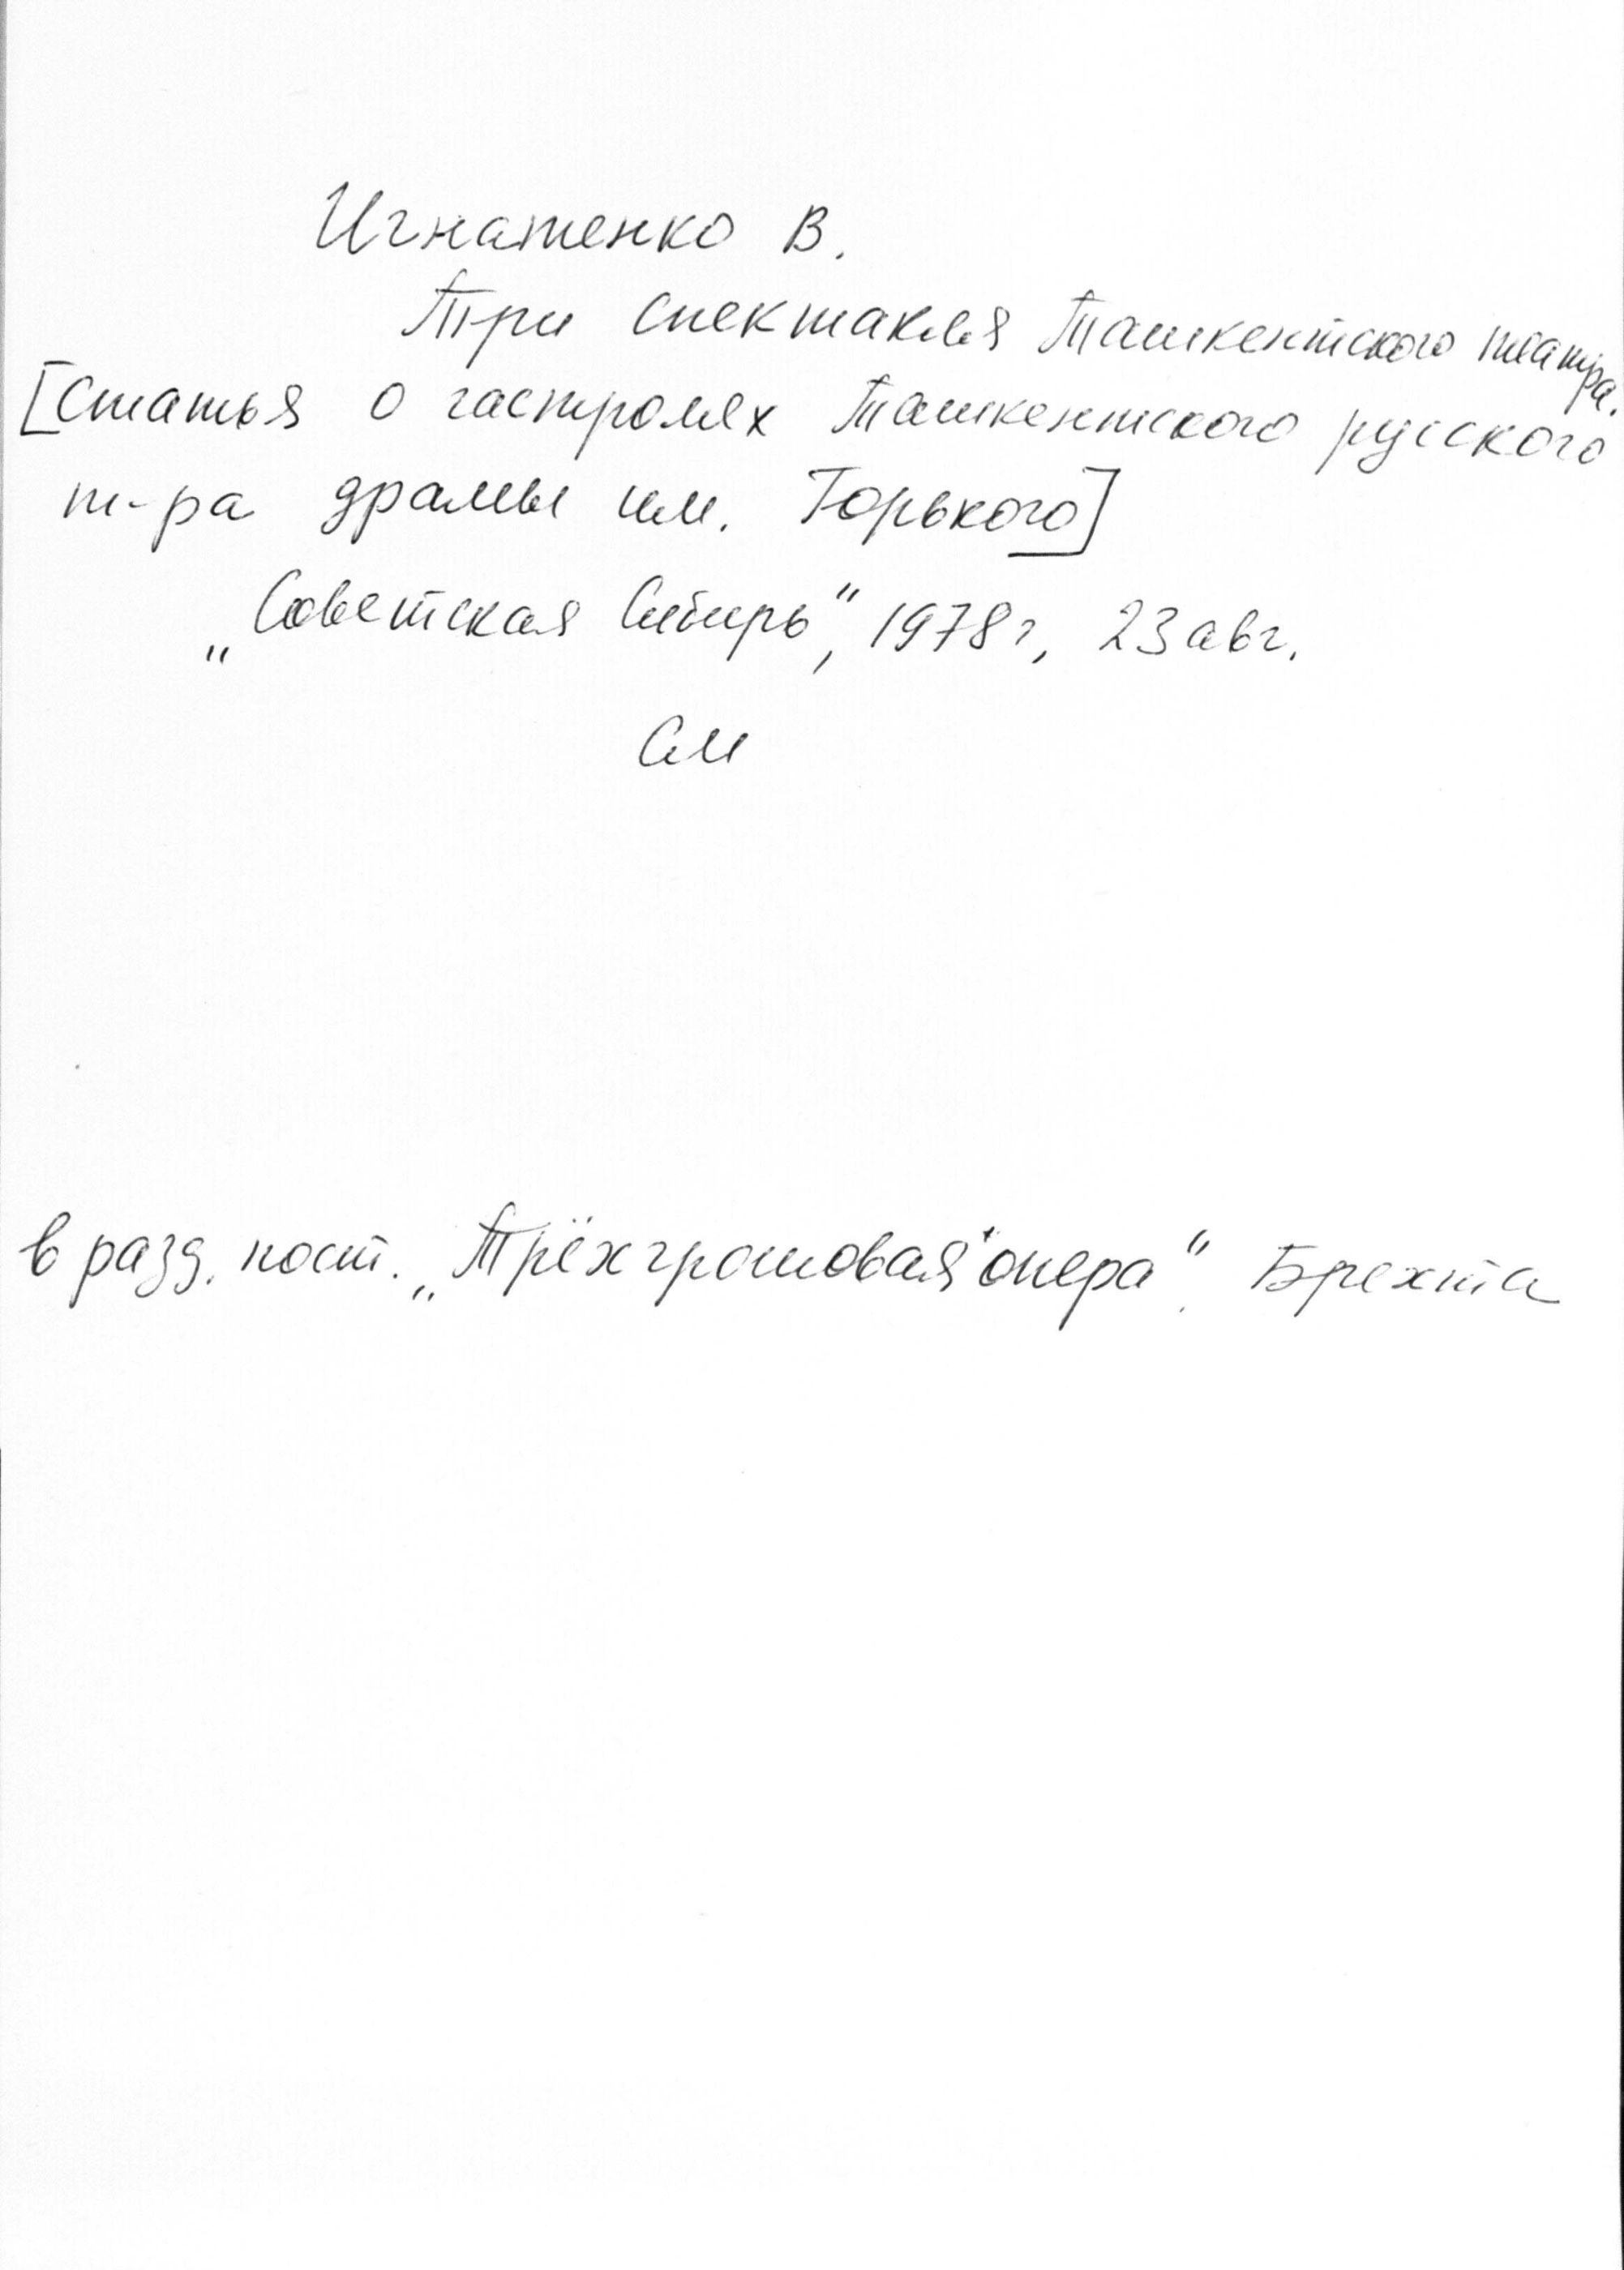 Игнатенко В.
Три спектакля Ташкентского театра.
[Статья о гастролях Ташкентского русского
т-ра драмы им. Горького]
„Советская Сибирь“, 1978г, 23 авг.
См
в разд. пост. „Трёхгрошовая опера“. Брехта